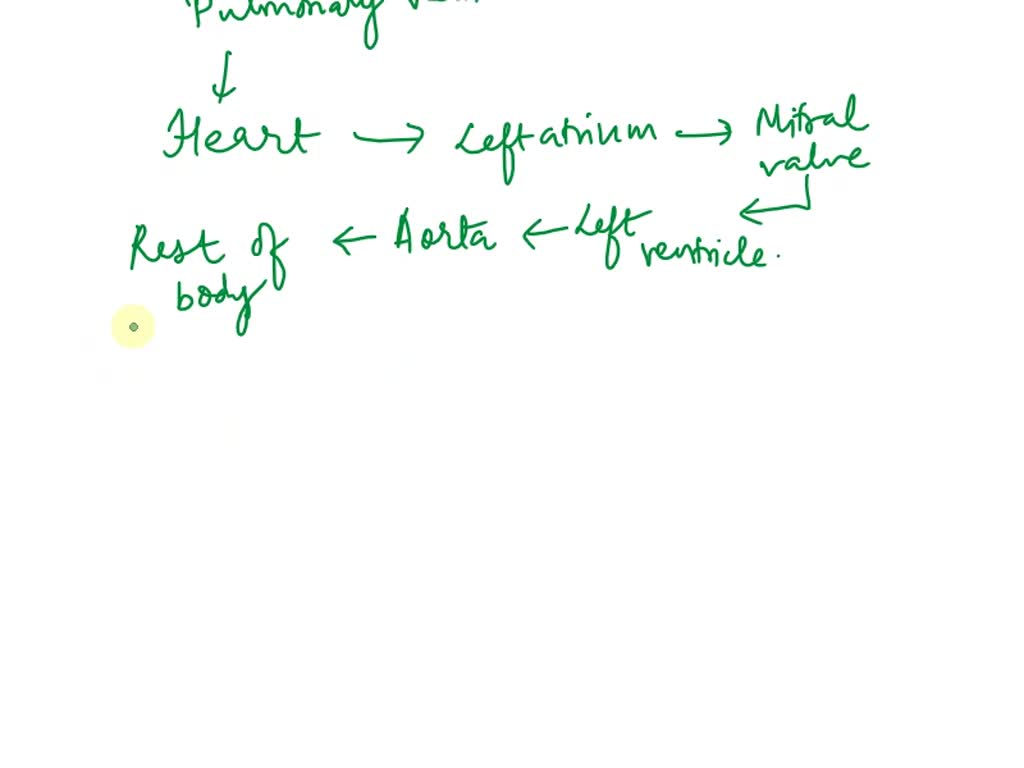 Pulmonary
↓
Heart → Left atrium → Mitral valve
Rest of body ← Aorta ← Left ventricle.